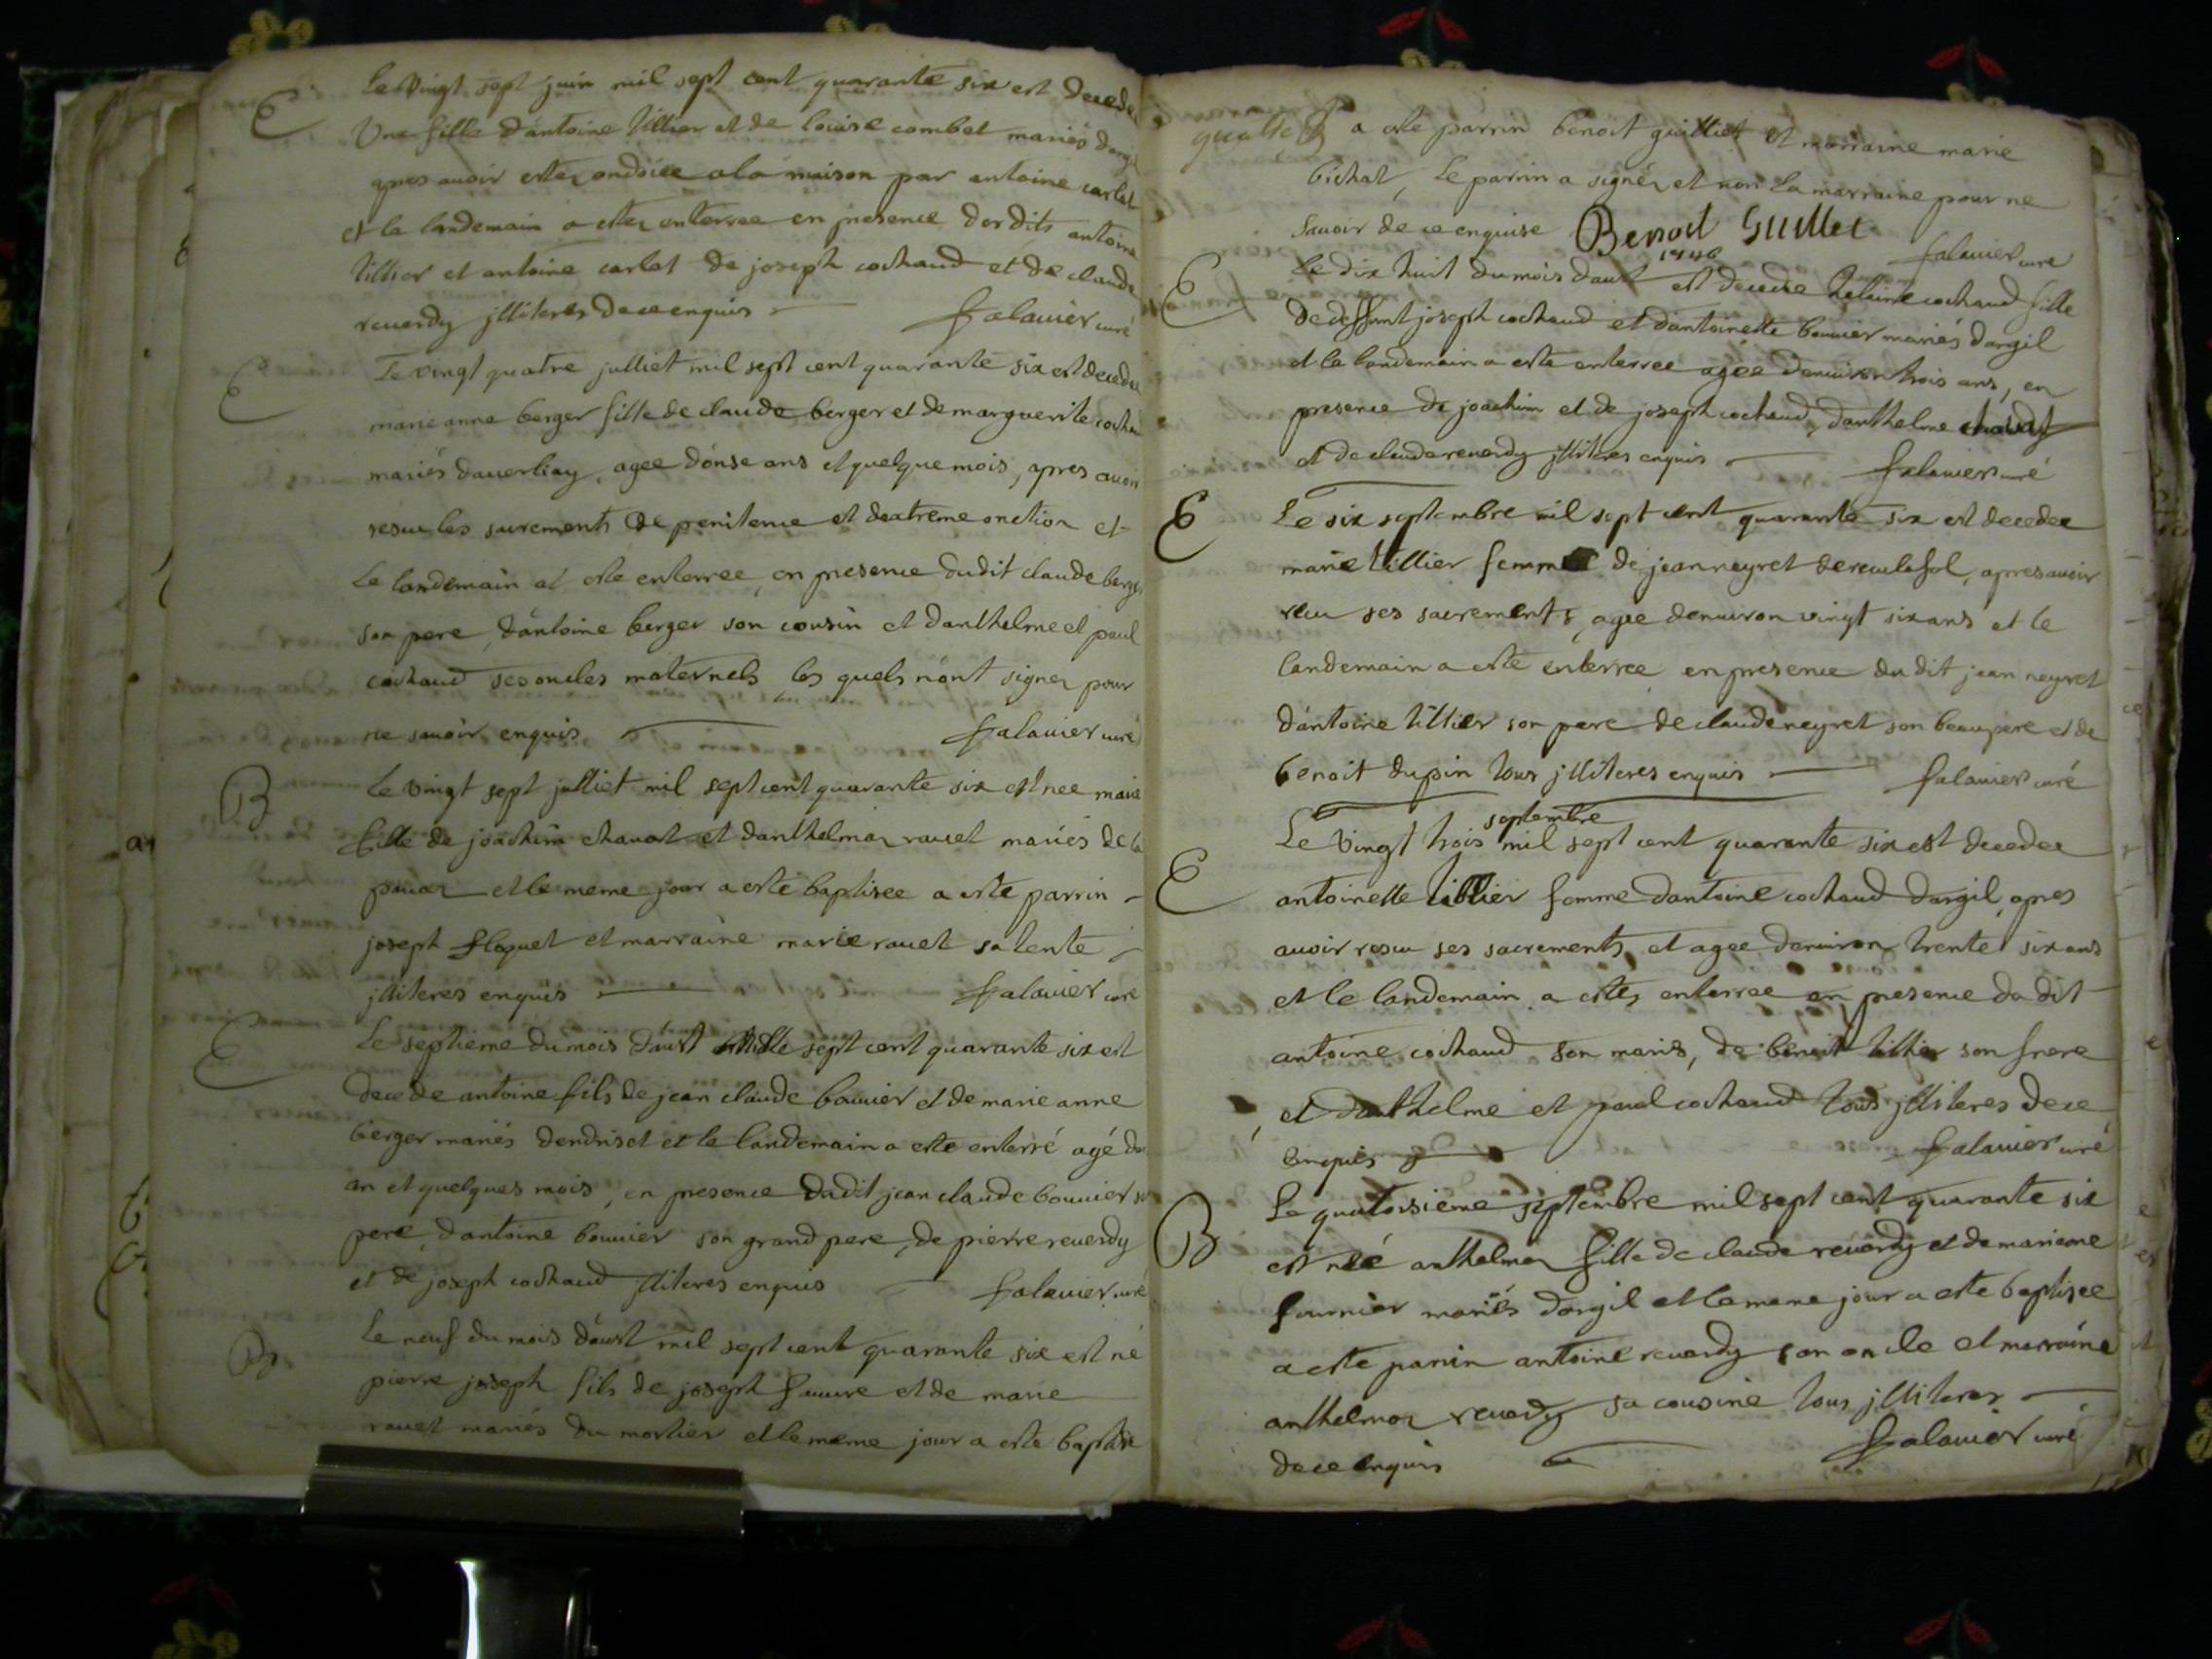 E Le vingt sept juin mil sept cent quarante six est decedee
Une fille d'antoine tillier et de louise combet mariés d'argil
apres avoir estez ondoiee a la maison par antoine carlet
et le landemain a estez enterree en presence des dits antoine
tillier et antoine carlet de joseph cochaud et de claude
reverdy jlliteres de ce enquis falavier curé
E Le vingt quatre julliet mil sept cent quarante six est decedee
marie anne berger fille de claude berger et de marguerite cochau
mariés daverliay, agee d'onse ans et quelque mois, apres avoir
reseu les sacrements de penitence et dextreme onction et
Le landemain at este enterree, en presence dudit claude berger
son pere, d'antoine berger son cousin et danthelme et paul
cochaud ses oncles maternels, les quels n'ont signez pour
ne savoir enquis falavier curé
B Le vingt sept julliet mil sept cent quarante six est nee marie
fille de joachim chavat et danthelmaz ravet mariés de la
et le meme jour a esté baptisee a este parrin
joseph floquet et marraine marie ravet sa tente
jlliteres enquis falavier curé
E Le septieme du mois daust mille sept cent quarante six est
decede antoine fils de jean claude bouvier et de marie anne
berger mariés dendriset et le landemain a este enterré agé dun
an et quelques mois, en presence dudit jean claude bouvier so
pere, d'antoine bouvier son grand pere, de pierre reverdy
et de joseph cochaud jlliteres enquis falavier curé
B Le neuf du mois d'aust mil sept cent quarante six est né
pierre joseph fils de joseph favre et de marie
ravet mariés du mortier et le meme jour a este baptisé
a este parrin benoit guilliet et marraine marie
bichat, Le parrin a signéz et non la marraine pour ne
savoir de ce enquise Benoit Guillet
1746 falavier curé
E Le dix huit du mois daust est decedee heleine cochaud fille
de deffunt joseph cochaud et d'antoinette bouvier mariés dargil
et le landemain a este enterree agee denviron trois ans, en
presence de joachim et de joseph cochaud, danthelme chavat
et de claude reverdy jlliteres enquis falavier curé
E Le six septembre mil sept cent quarante six est decedee
marie tillier femme de jean neyret apres avoir
receu ses sacrements, agee denviron vingt six ans et le
landemain a este enterree en presence du dit jean neyret
d'antoine tillier son pere de claude neyret son beau pere et de
benoit dupin tous jlliteres enquis falavier curé
septembre
Le vingt trois mil sept cent quarante six est decedee
E antoinette tillier femme dantoine cochaud dargil, apres
avoir reseu ses sacrements, et agee denviron trente six ans
et le landemain a estez enterree en presence du dit
antoine cochaud son mariz, de benoit tillier son frere
et danthelme et paul cochaud tous jlliteres de ce
enquis falavier curé
B Le quatorsieme septembre mil sept cent quarante six
est néé anthelmaz fille de claude reverdy et de marianne
fournier mariés dargil et le meme jour a este baptisee
a este parrin antoine reverdy son oncle et marraine
anthelmaz reverdy sa cousine tous jlliteres
de ce enquis falavier curé